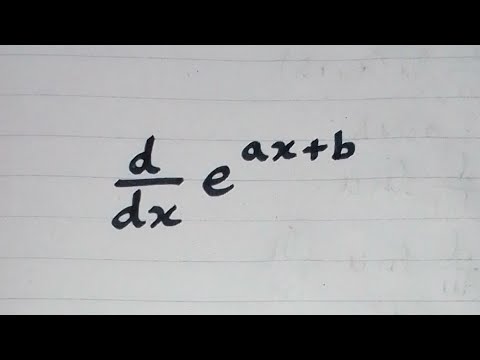 d/dx e^{ax+b}